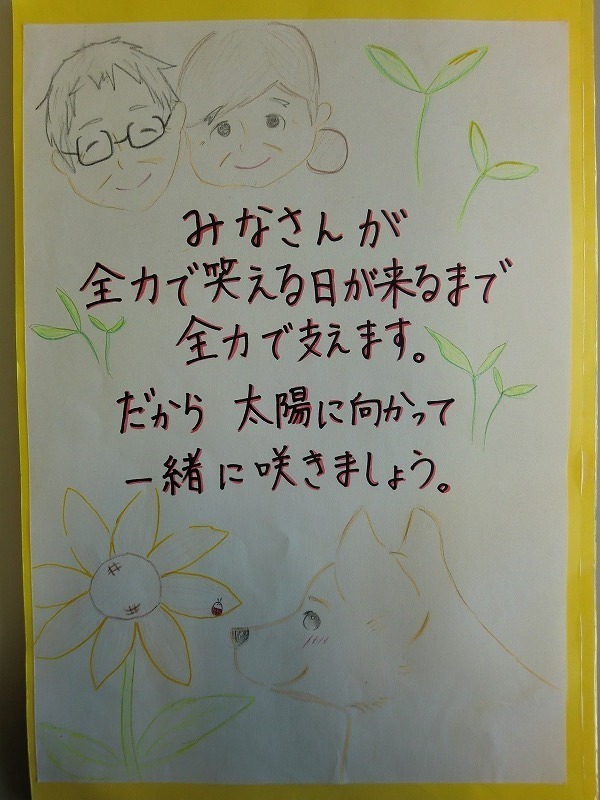 みなさんが
全力で笑える日が来るまで
全力で支えます。
だから 太陽に向かって
一緒に咲きましょう。